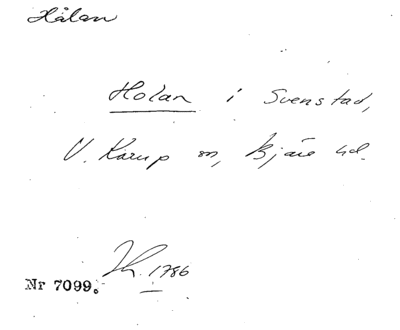 Hålan
Holan i Svenstad,
V. Karup sn, Bjäre hd.
Jh. 1786
Nr 7099.